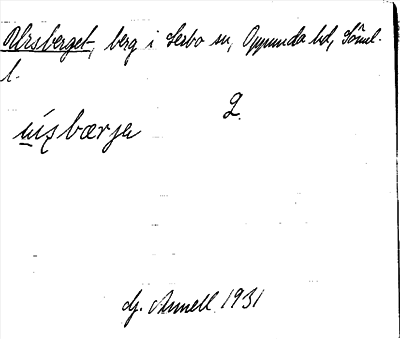 Ulvsberget, berg i Lerbo sn, Oppunda hd, Söml.
l.
2.
dj. Annell 1931